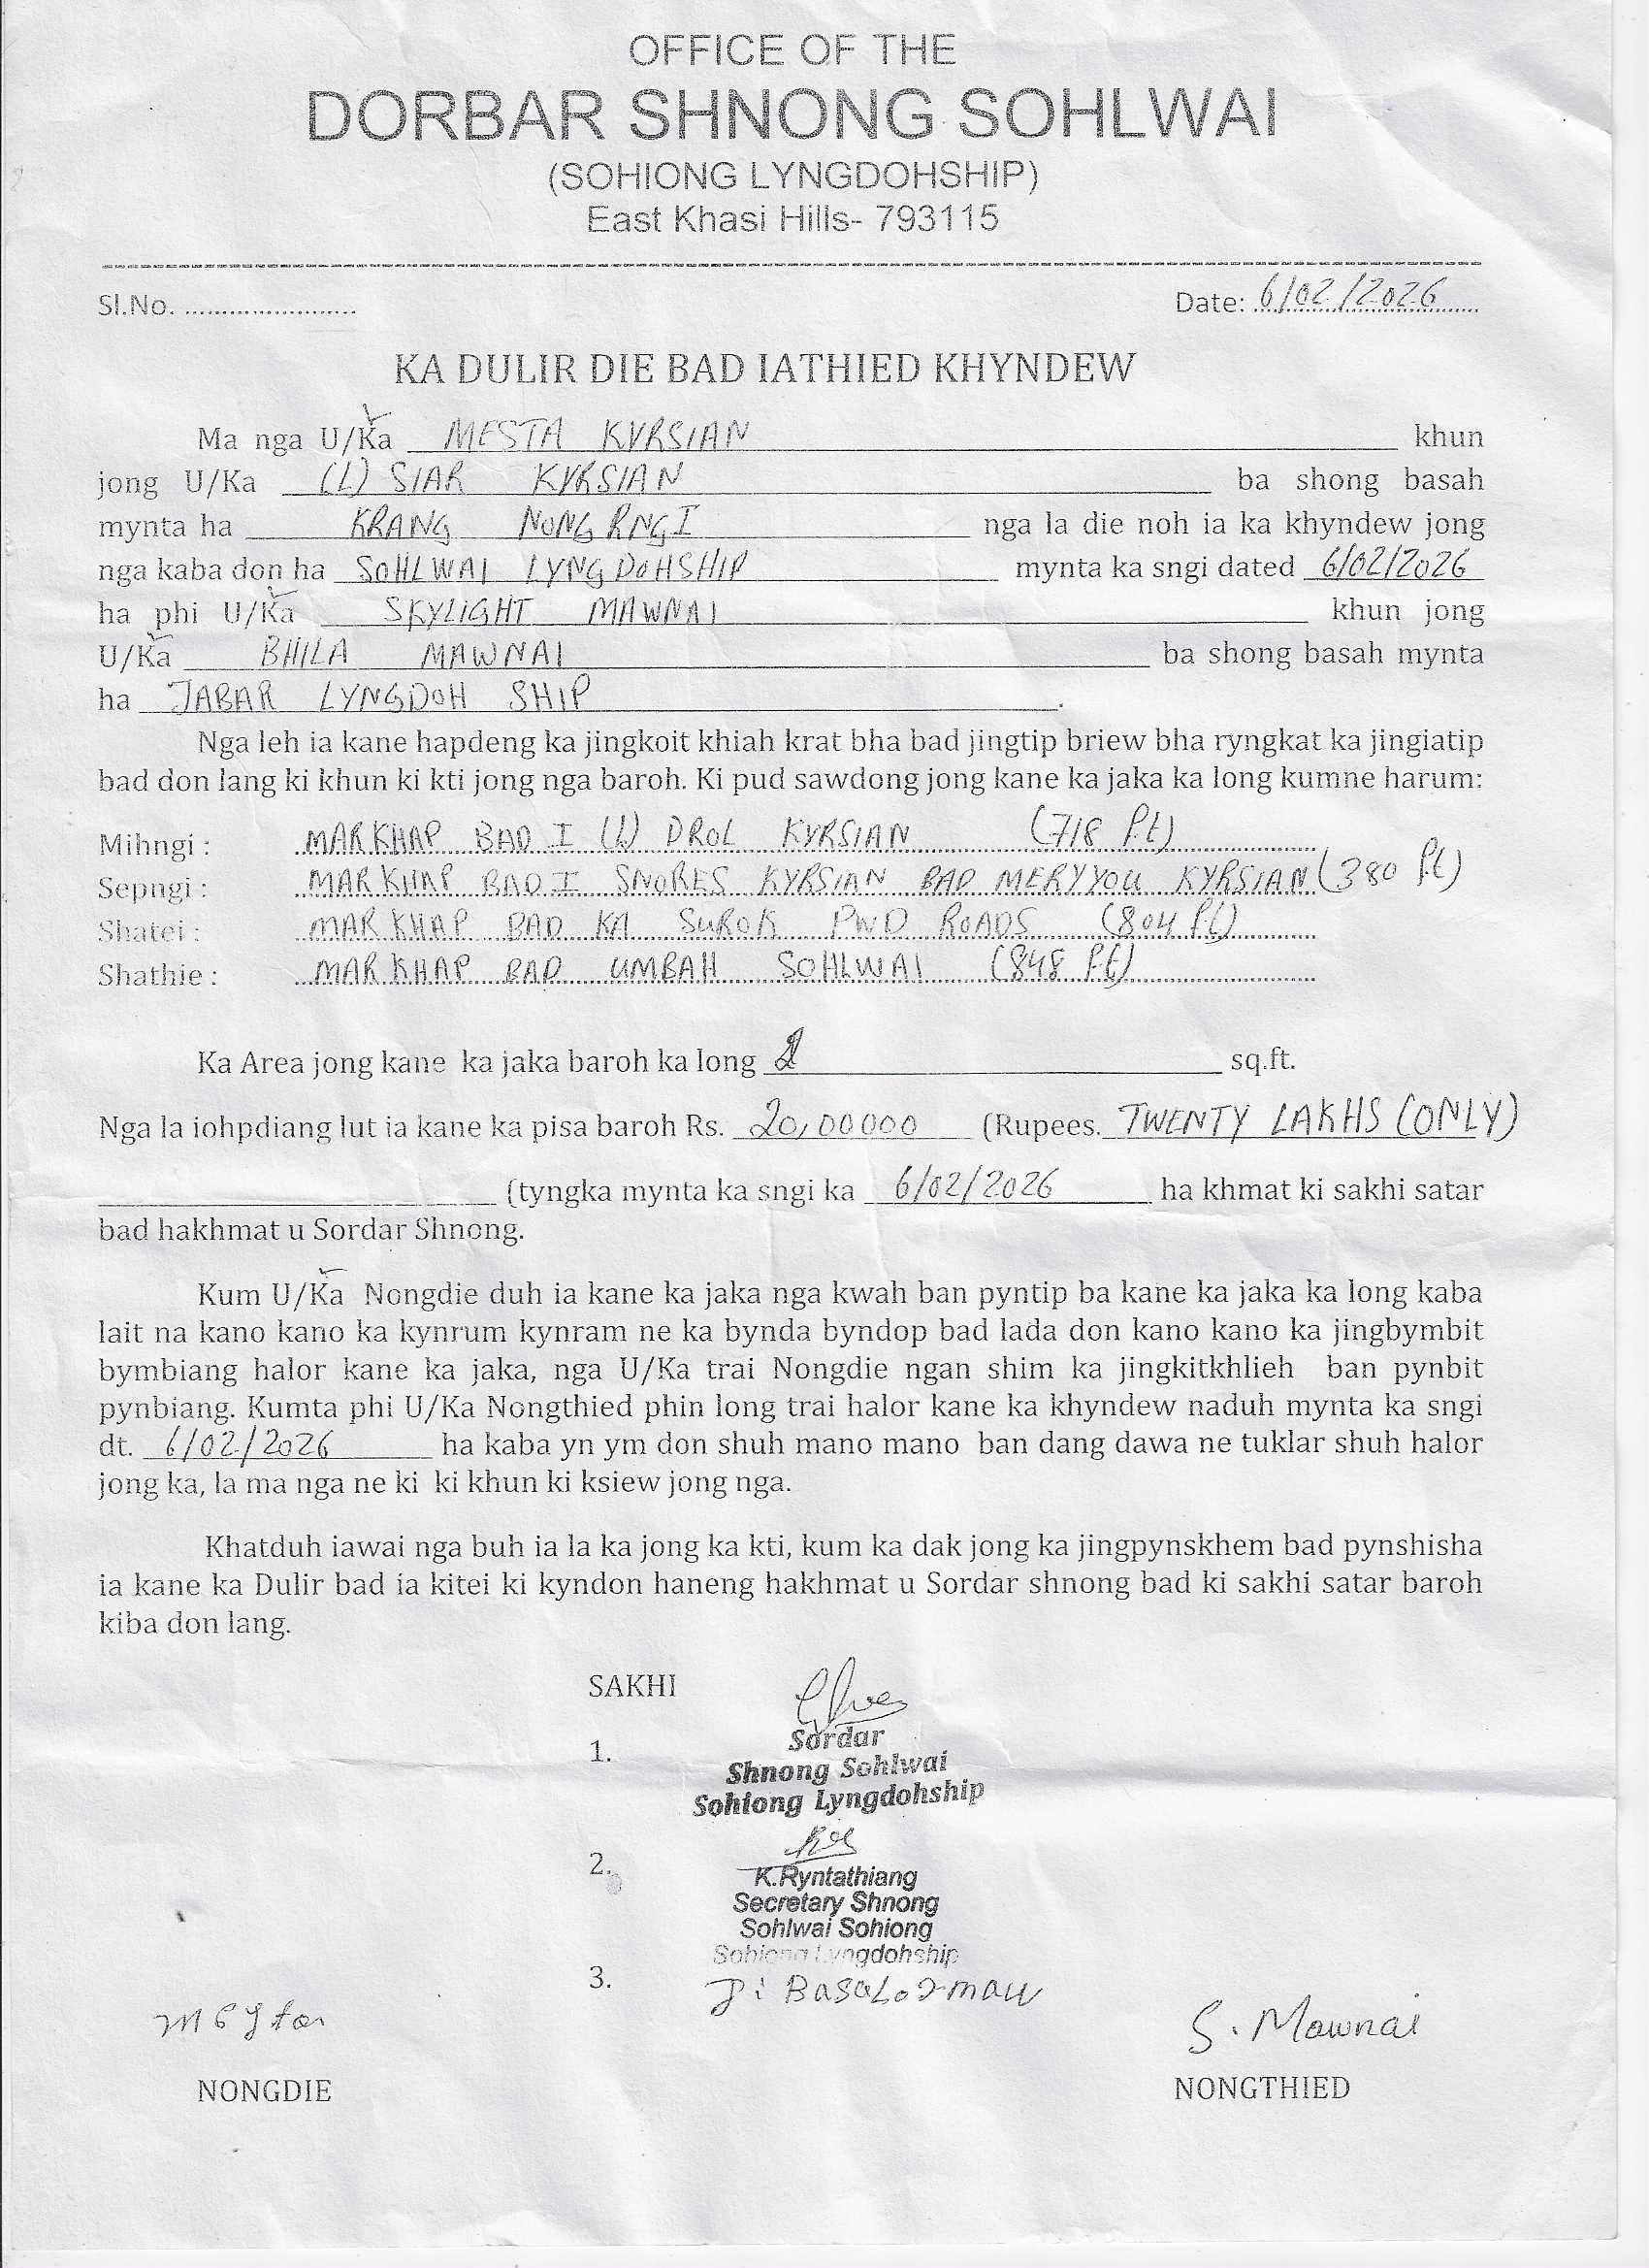 OFFICE OF THE
DORBAR SHNONG SOHLWAI
(SOHIONG LYNGDOHSHIP)
East Khasi Hills- 793115
Sl.No. ........................ Date: 6/02/2026
KA DULIR DIE BAD IATHIED KHYNDEW
Ma nga U/Ka MESTA KYRSIAN khun
jong U/Ka (L) SIAR KYRSIAN ba shong basah
mynta ha KRANG NONGRNGI nga la die noh ia ka khyndew jong
nga kaba don ha SOHLWAI LYNGDOHSHIP mynta ka sngi dated 6/02/2026
ha phi U/Ka SKYLIGHT MAWNAI khun jong
U/Ka BHILA MAWNAI ba shong basah mynta
ha JABAR LYNGDOH SHIP.
Nga leh ia kane hapdeng ka jingkoit khiah krat bha bad jingtip briew bha ryngkat ka jingiatip
bad don lang ki khun ki kti jong nga baroh. Ki pud sawdong jong kane ka jaka ka long kumne harum:
Mihngi : MARKHAP BAD I (L) DROL KYRSIAN (718 ft)
Sepngi : MARKHAP BAD I SNORES KYRSIAN BAD MERYYOU KYRSIAN (380 ft)
Shatei : MARKHAP BAD KA SUROK PWD ROADS (804 ft)
Shathie : MARKHAP BAD UMBAH SOHLWAI (848 ft)
Ka Area jong kane ka jaka baroh ka long sq.ft.
Nga la iohpdiang lut ia kane ka pisa baroh Rs. 20,00000 (Rupees. TWENTY LAKHS (ONLY)
(tyngka mynta ka sngi ka 6/02/2026 ha khmat ki sakhi satar
bad hakhmat u Sordar Shnong.
Kum U/Ka Nongdie duh ia kane ka jaka nga kwah ban pyntip ba kane ka jaka ka long kaba
lait na kano kano ka kynrum kynram ne ka bynda byndop bad lada don kano kano ka jingbymbit
bymbiang halor kane ka jaka, nga U/Ka trai Nongdie ngan shim ka jingkitkhlieh ban pynbit
pynbiang. Kumta phi U/Ka Nongthied phin long trai halor kane ka khyndew naduh mynta ka sngi
dt. 6/02/2026 ha kaba yn ym don shuh mano mano ban dang dawa ne tuklar shuh halor
jong ka, la ma nga ne ki ki khun ki ksiew jong nga.
Khatduh iawai nga buh ia la ka jong ka kti, kum ka dak jong ka jingpynskhem bad pynshisha
ia kane ka Dulir bad ia kitei ki kyndon haneng hakhmat u Sordar shnong bad ki sakhi satar baroh
kiba don lang.
SAKHI
1. Sordar
Shnong Sohlwai
Sohiong Lyngdohship
2. K.Ryntathiang
Secretary Shnong
Sohlwai Sohiong
Sohiong Lyngdohship
3.
S. Mawnai
NONGDIE NONGTHIED